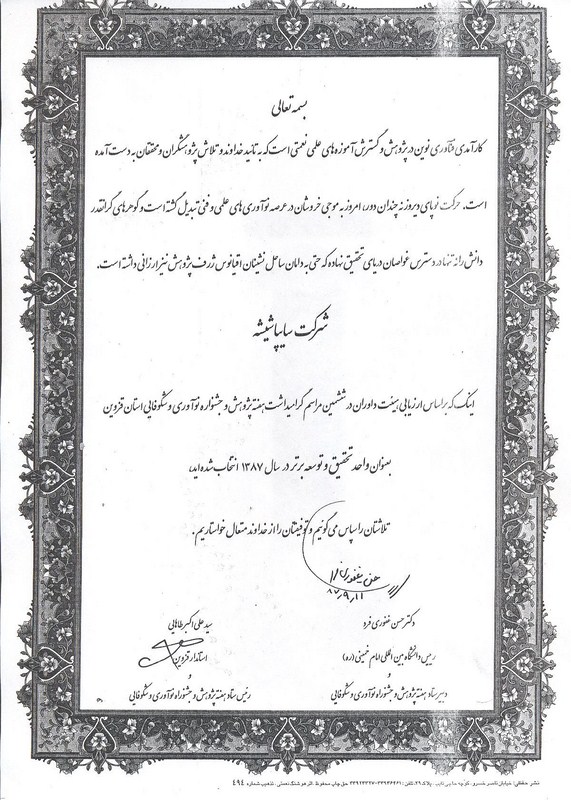 بسمه تعالی
کارآمدی فنآوری نوین در پژوهش و گسترش آموزه های علمی نعمتی است که به تائید خداوند و تلاش پژوهشگران و محققان به دست آمده
است. حرکت نوپای دیروز نه چندان دور، امروز به موجی خروشان در عرصه نوآوری های علمی و فنی تبدیل گشته است و گوهرهای گرانقدر
دانش را نه تنها در دسترس غواصان دریای تحقیق نهاده که حتی به دامان ساحل نشینان اقیانوس ژرف پژوهش نیز ارزانی داشته است.
شرکت سایپا شیشه
اینک که براساس ارزیابی هیئت داوران در ششمین مراسم گرامیداشت هفته پژوهش و جشنواره نوآوری و شکوفایی استان قزوین
بعنوان واحد تحقیق و توسعه برتر در سال ۱۳۸۷ انتخاب شده اید،
تلاشتان را سپاس می گوئیم و توفیقتان را از خداوند متعال خواستاریم.
۸۷،۹،۱۱
دکتر حسن غفوری فرد
رئیس دانشگاه بین المللی امام خمینی (ره)
و
دبیر ستاد هفته پژوهش و جشنواره نوآوری و شکوفایی
سید علی اکبر طاهایی
استاندار قزوین
و
رئیس ستاد هفته پژوهش و جشنواره نوآوری و شکوفایی
نشر حقانی: خیابان ناصر خسرو، کوچه حاجی نایب، پلاک ۲۹، تلفن: حق چاپ محفوظ. اثر هوشنگ نعمتی، تذهیب شماره ۴۹۴